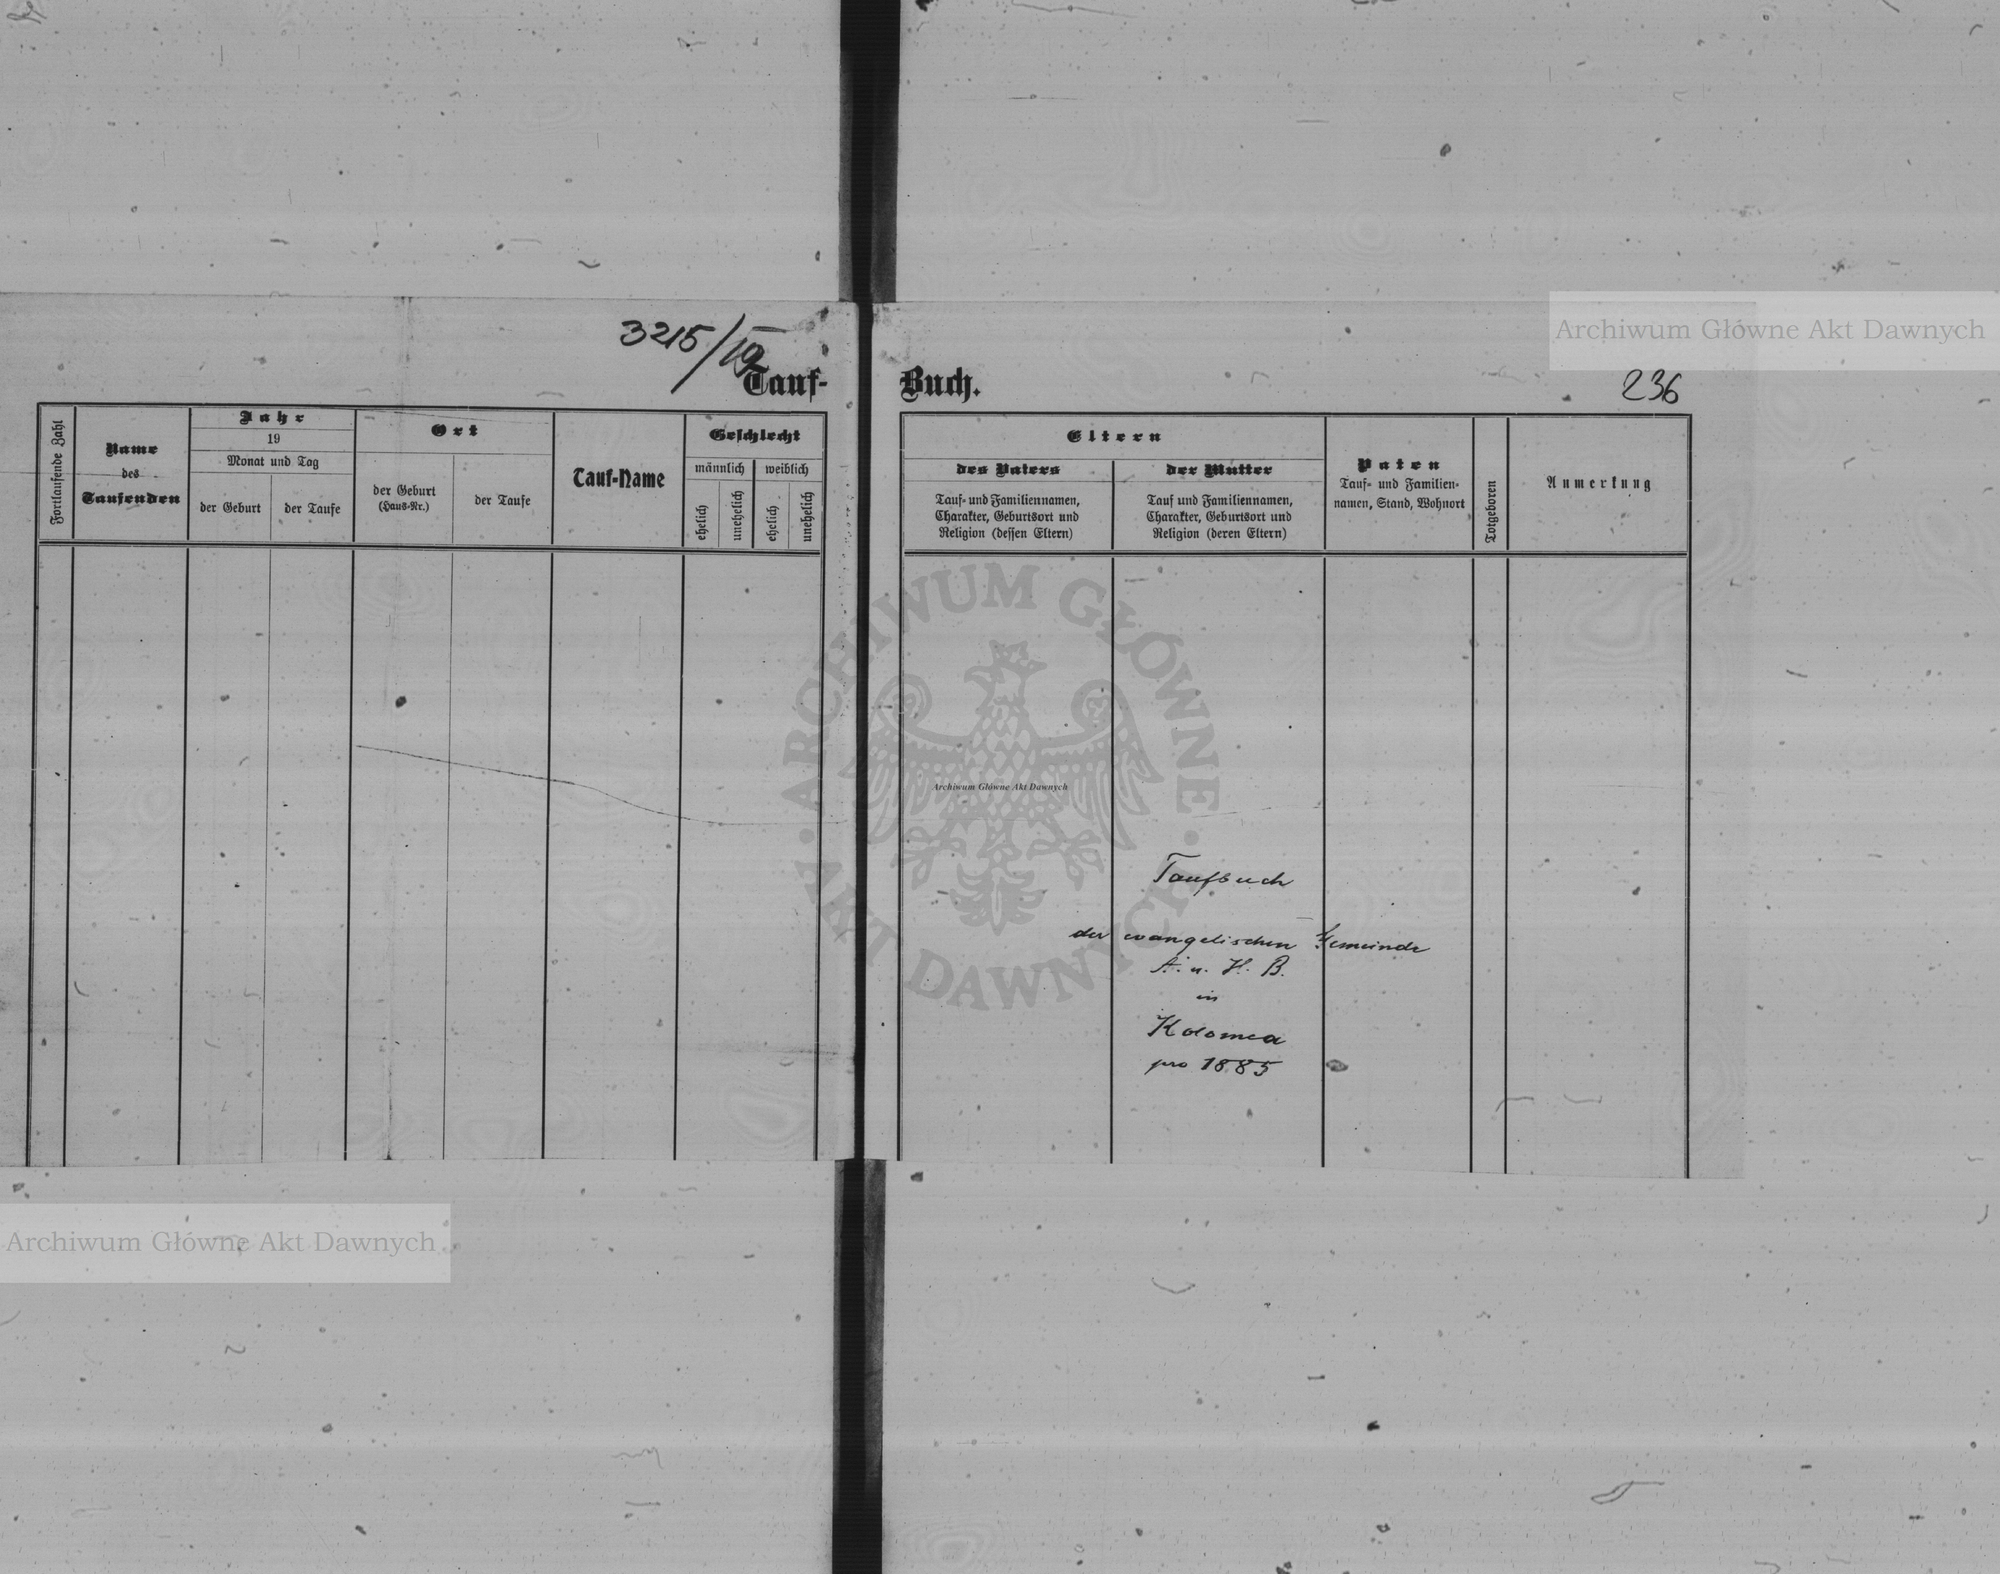 3215/
Tauf-
Buch.
236
Archiwum Główne Akt Dawnych
Fortlaufende Zahl
Name
des
Taufenden
Jahr
19
Monat und Tag
der Geburt
der Taufe
Ort
der Geburt
(Haus-Nr.)
der Taufe
Tauf-Name
Geschlecht
männlich
weiblich
ehelich
unehelich
ehelich
unehelich
Eltern
des Vaters
Tauf- und Familiennamen,
Charakter, Geburtsort und
Religion (dessen Eltern)
der Mutter
Tauf und Familiennamen,
Charakter, Geburtsort und
Religion (deren Eltern)
Paten
Tauf- und Familien-
namen, Stand, Wohnort
Totgeboren
Anmerkung
ARCHIWUM GŁÓWNE · AKT DAWNYCH ·
Archiwum Główne Akt Dawnych
Taufbuch
der evangelischen Gemeinde
A. u. H. B.
in
Kolomea
pro 1885
Archiwum Główne Akt Dawnych